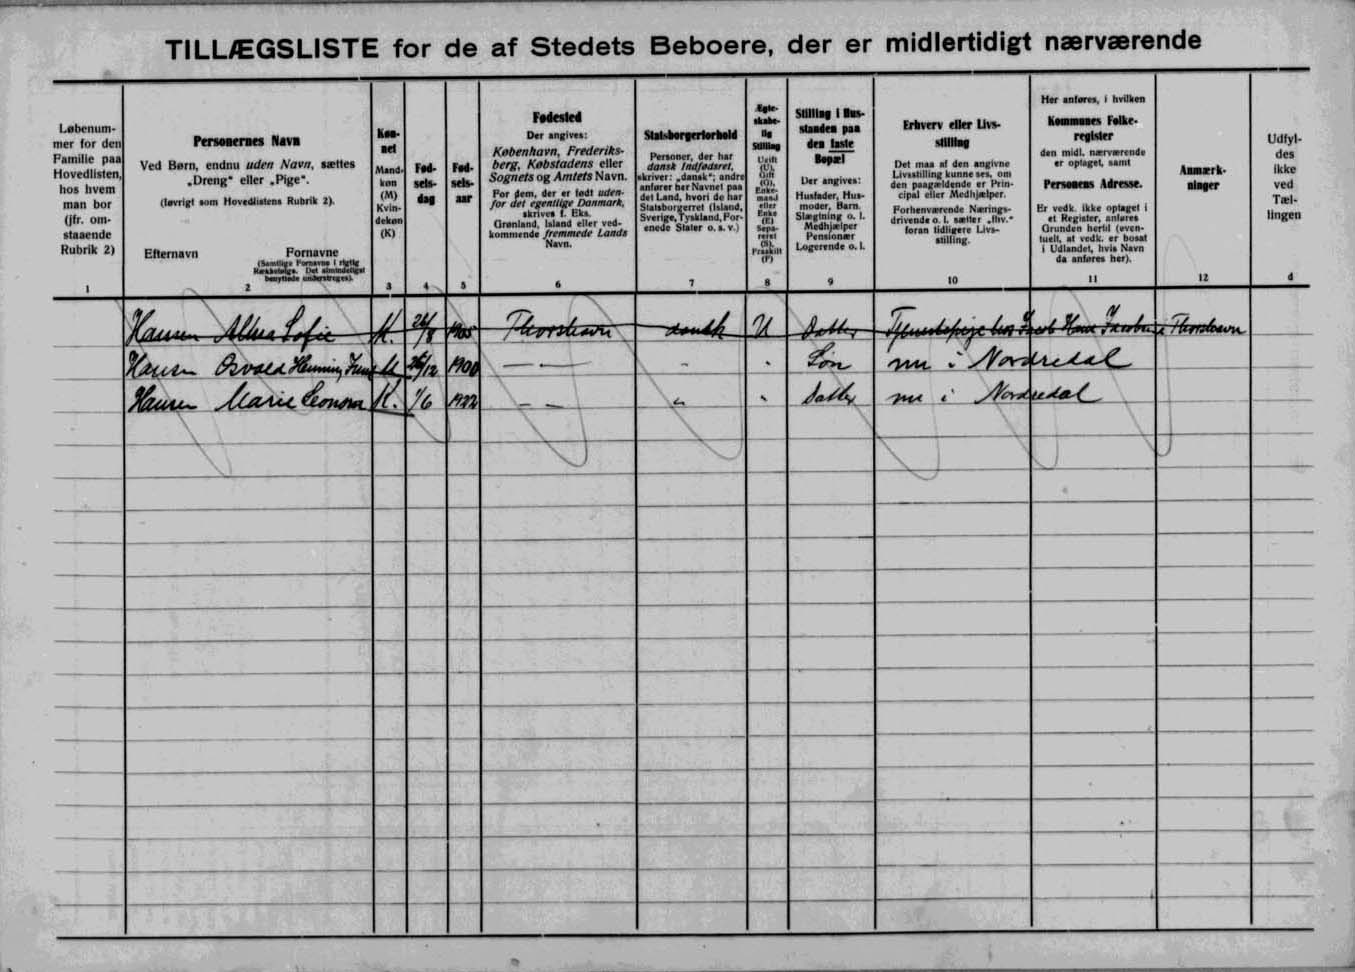 TILLÆGSLISTE for de af Stedets Beboere, der er midlertidigt nærværende
Løbenum-
mer for den
Familie paa
Hovedlisten,
hos hvem
man bor
(jfr. om-
staaende
Rubrik 2)
1
Personernes Navn
Ved Børn, endnu uden Navn, sættes
„Dreng“ eller „Pige“.
(Iøvrigt som Hovedlistens Rubrik 2).
Efternavn
Fornavne
(Samtlige Fornavne i rigtig
Rækkefølge. Det almindeligst
benyttede understreges).
2
Køn-
net
Mand-
køn
(M)
Kvin-
dekøn
(K)
3
Fød-
sels-
dag
4
Fød-
sels-
aar
5
Fødested
Der angives:
København, Frederiks-
berg, Købstadens eller
Sognets og Amtets Navn.
For dem, der er født uden-
for det egentlige Danmark,
skrives f. Eks.
Grønland, Island eller ved-
kommende fremmede Lands
Navn.
6
Statsborgerforhold
Personer, der har
dansk Indfødsret,
skriver: „dansk“; andre
anfører her Navnet paa
det Land, hvori de har
Statsborgerret (Island,
Sverige, Tyskland, For-
enede Stater o. s. v.)
7
Ægte-
skabe-
lig
Stilling
Ugift
(U),
Gift
(G),
Enke-
mand
eller
Enke
(E)
Sepa-
reret
(S),
Fraskilt
(F)
8
Stilling i Hus-
standen paa
den faste
Bopæl
Der angives:
Husfader, Hus-
moder, Barn,
Slægtning o. l.
Medhjælper
Pensionær
Logerende o. l.
9
Erhverv eller Livs-
stilling
Det maa af den angivne
Livsstilling kunne ses, om
den paagældende er Prin-
cipal eller Medhjælper.
Forhenværende Nærings-
drivende o. l. sætter „fhv.“
foran tidligere Livs-
stilling.
10
Her anføres, i hvilken
Kommunes Folke-
register
den midl. nærværende
er optaget, samt
Personens Adresse.
Er vedk. ikke optaget i
et Register, anføres
Grunden hertil (even-
tuelt, at vedk. er bosat
i Udlandet, hvis Navn
da anføres her).
11
Anmærk-
ninger
12
Udfyl-
des
ikke
ved
Tæl-
lingen
d
Hansen Sofie K. 26/8 1905 Thorshavn dansk U Datter Tjenestepige hos Jacob Hans Jacobsen i Thorshavn
Hansen Osvald Henning M 26/12 1900 — — „ „ Søn nu i Nordredal
Hansen Marie Leonora K. 1/6 1922 — — „ „ Datter nu i Nordredal